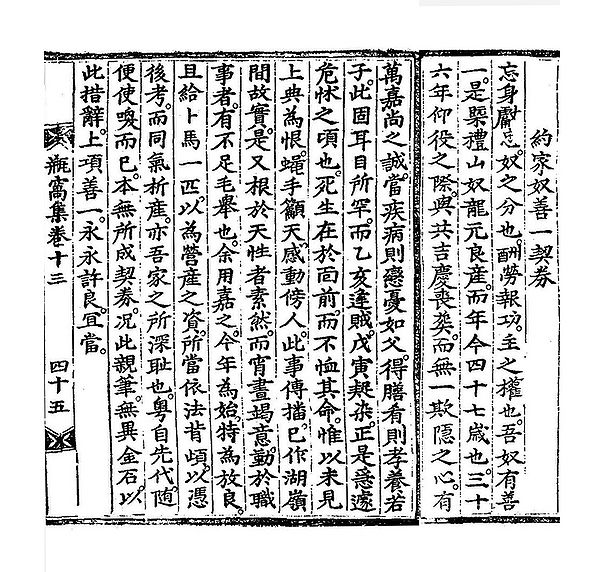 約家奴善一契券
忘身獻忠。奴之分也。酬勞報功。主之權也。吾奴有善
一。是槊禮山奴龍元良産。而年今四十七歲也。三十
六年仰役之際。與共吉慶喪葬。而無一欺隱之心。有
萬嘉尚之誠。當疾病則慇憂如父。得膳肴則孝養若
子。此固耳目所罕。而乙亥逢賊。戊寅疑染。正是急遽
危怵之頃也。死生在於面前。而不恤其命。惟以未見
上典為恨。蠅手籲天。感動傍人。此事傳播。已作湖嶺
間故實。是又根於天性者素然。而宵晝竭意。勤於職
事者。有不足毛舉也。余用嘉之。今年為始。特為放良。
且給卜馬一匹。以為營産之資。所當依法背頉。以憑
後考。而同氣析産。亦吾家之所深耻也。粤自先代。随
便使喚而已。本無所成契券。况此親筆。無異金石。以
此措辭。上項善一。永永許良。宜當。
瓶窩集卷十三
四十五